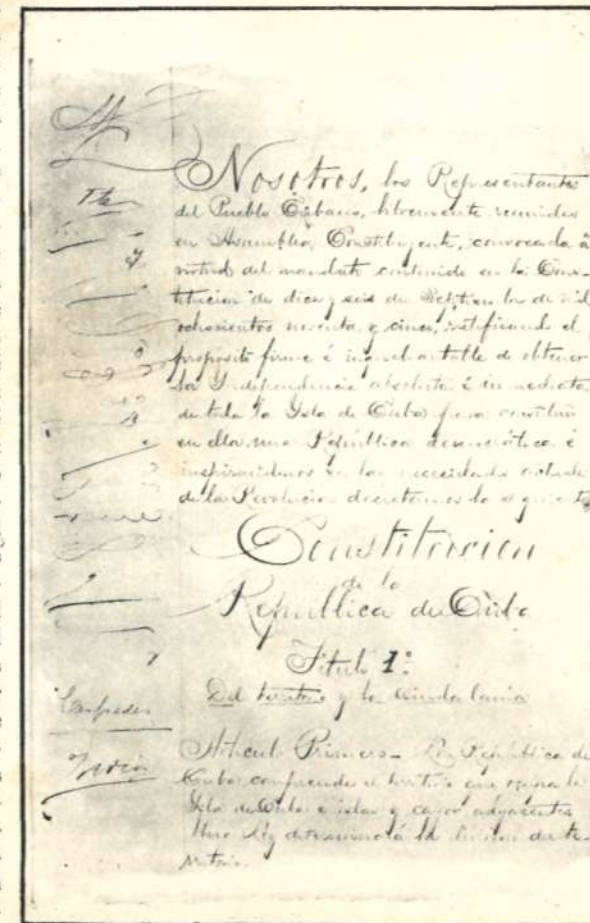 Nosotros, los Representantes
del Pueblo Cubano, libremente reunidos
en Asamblea Constituyente, convocada á
virtud del mandato contenido en la Cons-
titucion de diez y seis de Setiembre de mil
ochocientos noventa y cinco, ratificando el
proposito firme é inquebrantable de obtener
la Independencia absoluta é inmediata
de toda la Isla de Cuba, para constituir
en ella una República democrática é
inspirandonos en las necesidades actuales
de la Revolucion decretamos la siguiente
Constitucion
de la
Republica de Cuba
Titulo 1º
Del territorio y la ciudadania
Articulo Primero - La República de
Cuba comprende el territorio que ocupa la
Isla de Cuba é islas y cayos adyacentes
Una ley determinará la division del te-
rritorio.